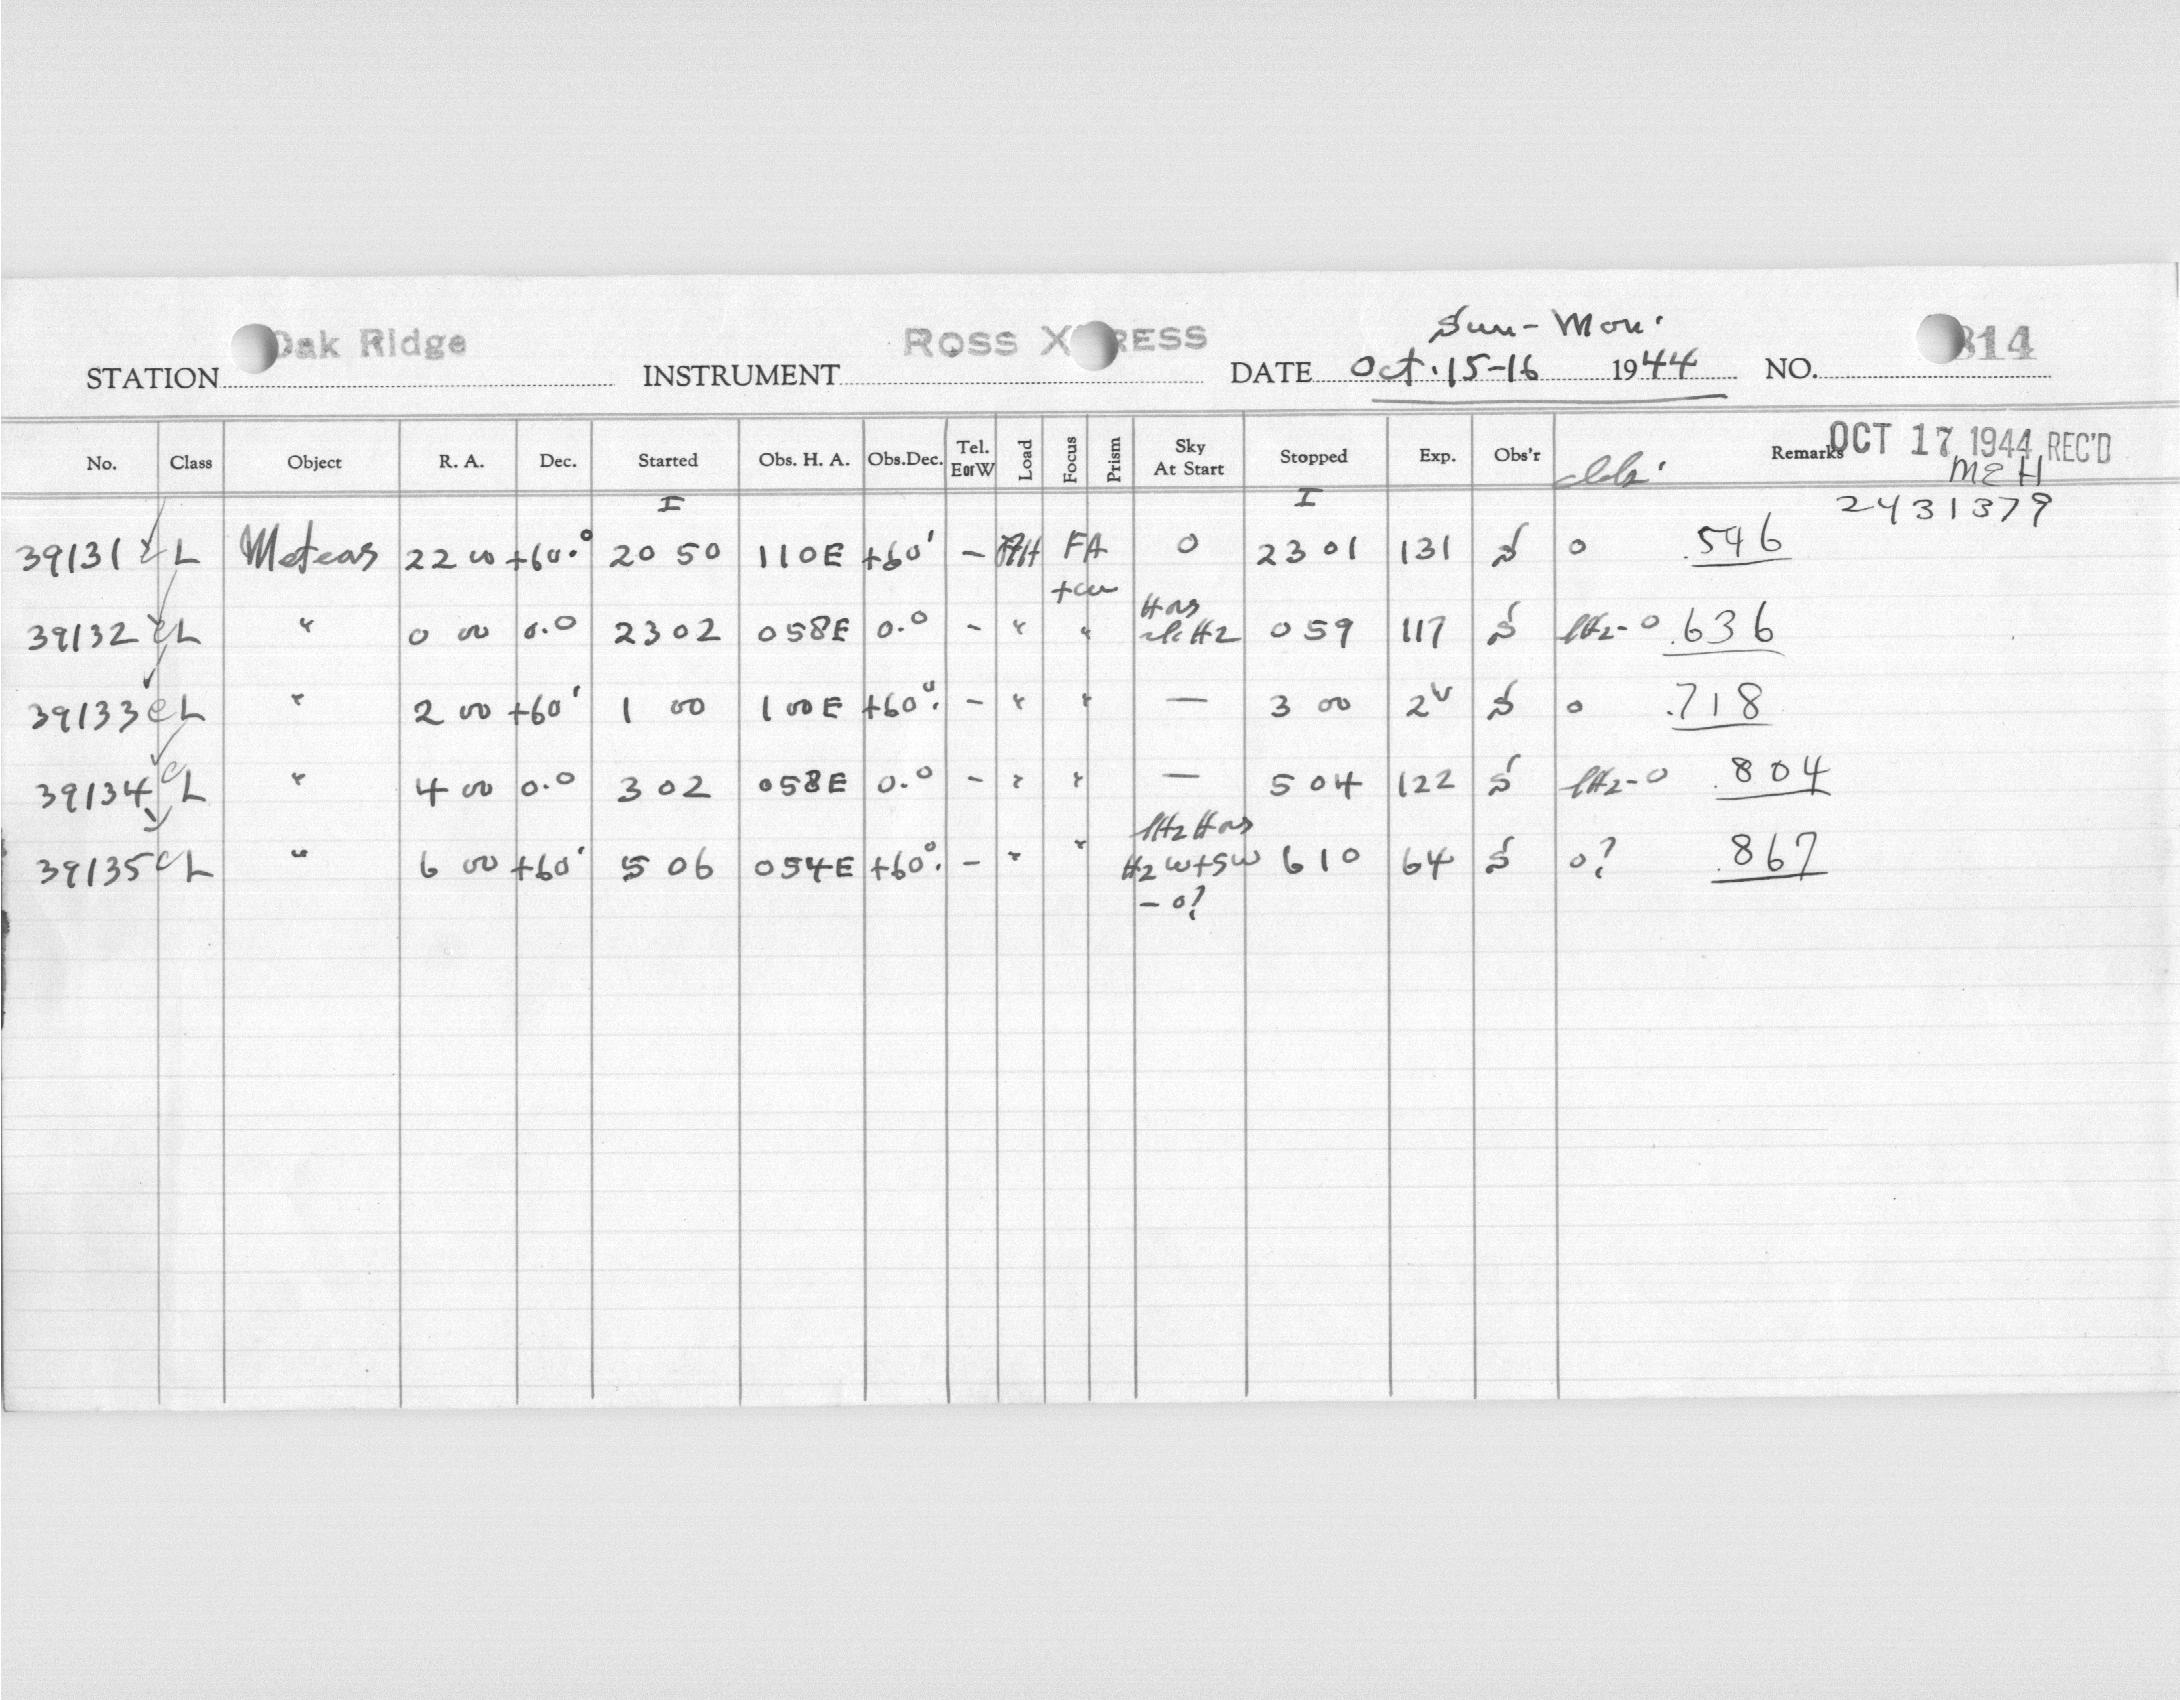 Sun - Mon.
STATION Oak Ridge INSTRUMENT ROSS X RESS DATE Oct. 15-16 1944 NO. 814
OCT 17 1944 REC'D
No. Class Object R. A. Dec. Started Obs. H. A. Obs.Dec. Tel. E or W Load Focus Prism Sky At Start Stopped Exp. Obs'r Remarks
MEH
I I 2431379
39131 L Meteors 22 00 +60.° 20 50 110E +60° - FA 0 23 01 131 S 0 .546
+cw
39132 eL " 0 00 0.0 23 02 058E 0.0 - " " 0 59 117 S Hz-0 .636
39133 eL " 2 00 +60° 1 00 1 00E +60°. - " " — 3 00 2 S 0 .718
39134 eL " 4 00 0.0 3 02 058E 0.0 - " " — 5 04 122 S Hz-0 .804
39135 eL " 6 00 +60° 5 06 054E +60°. - " " Hz W+SW 6 10 64 S 0? .867
- 0?